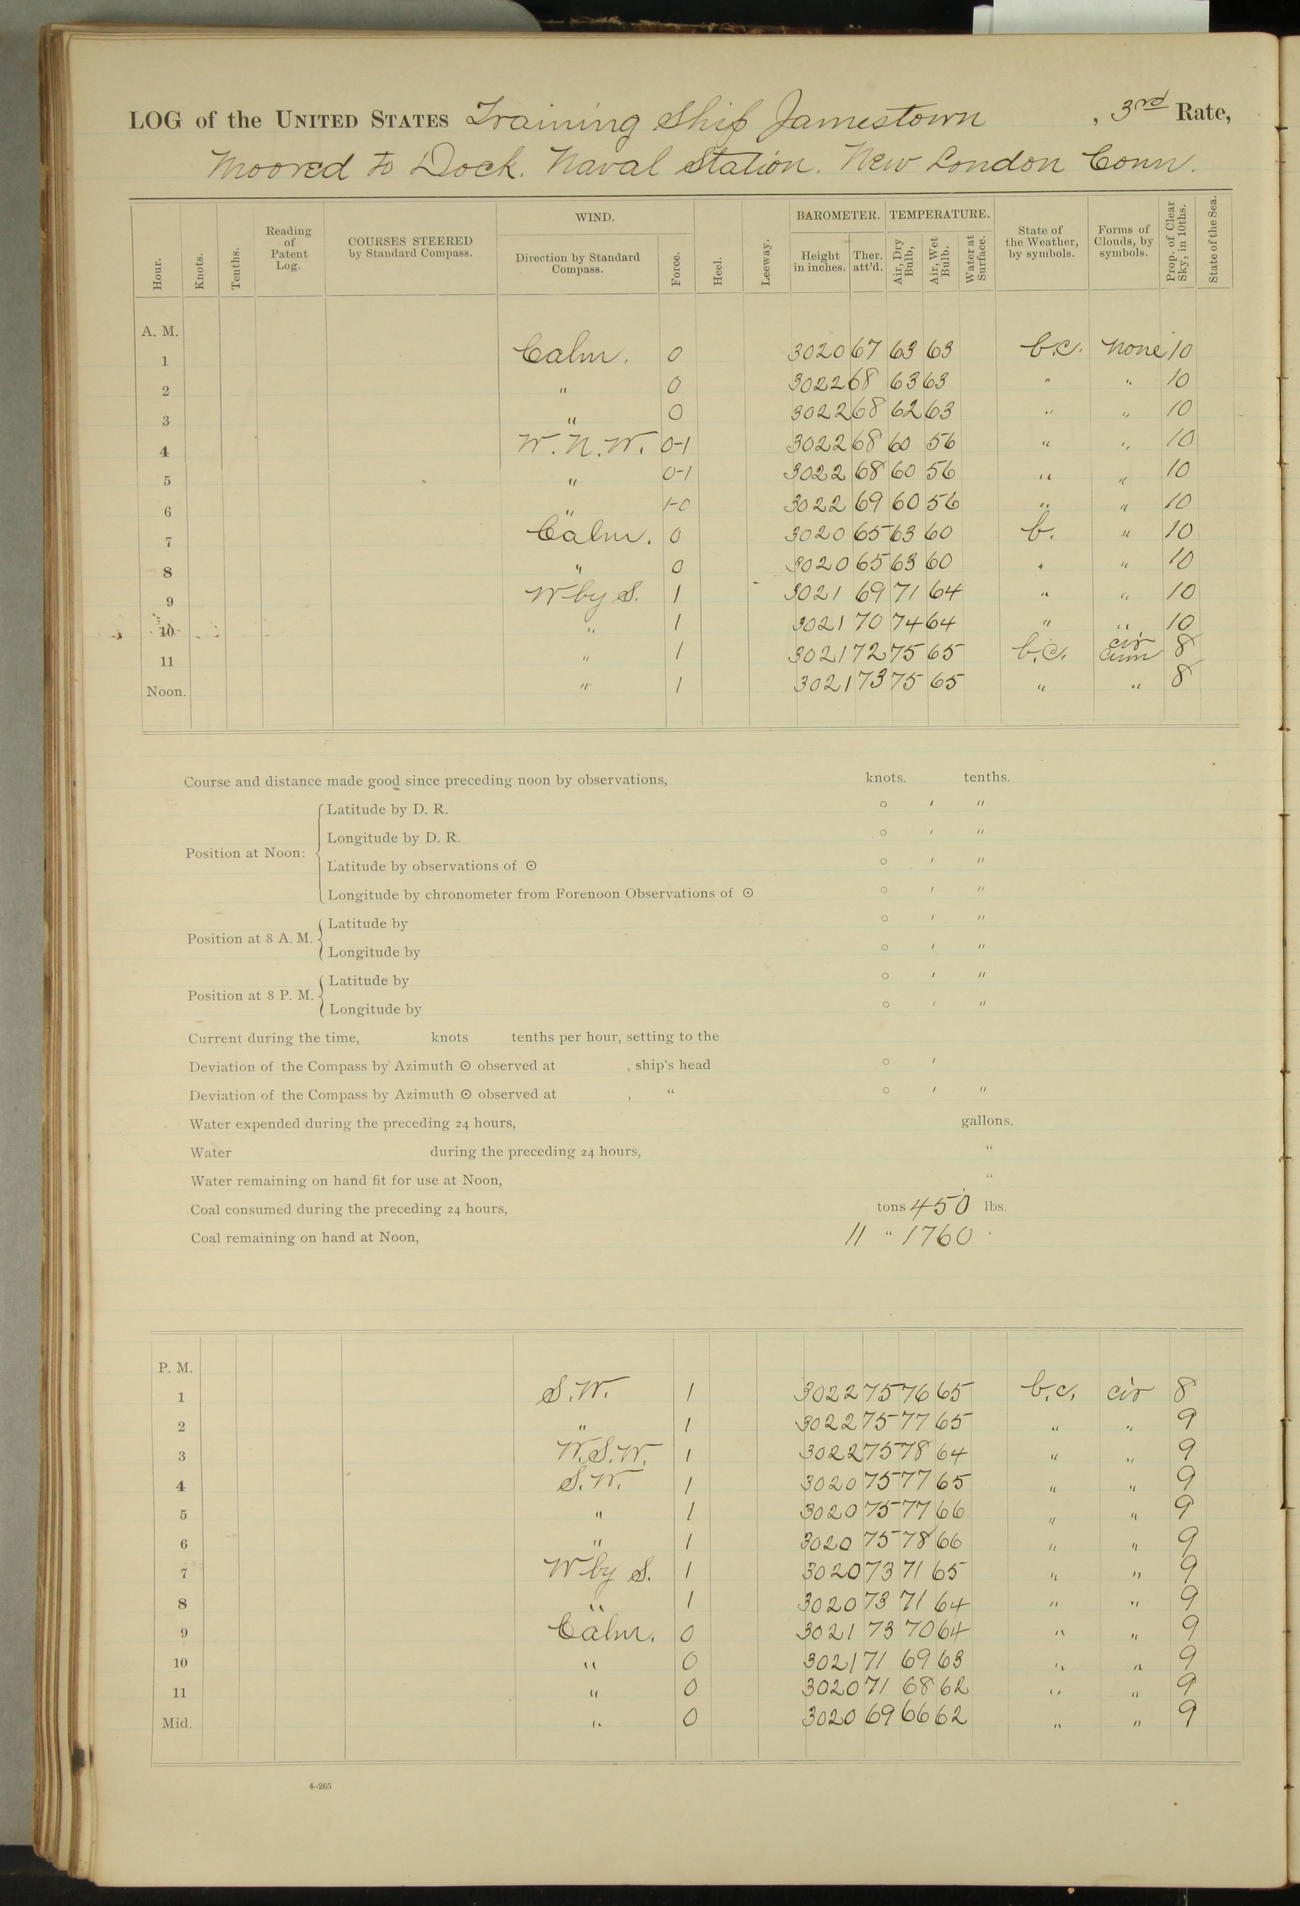 LOG of the UNITED STATES Training Ship Jamestown , 3rd Rate,
Moored to Dock. Naval Station. New London Conn.
Hour. Knots. Tenths. Reading of Patent Log. COURSES STEERED by Standard Compass. WIND. Direction by Standard Compass. Force. Heel. Leeway. BAROMETER. Height in inches. Ther. att'd. TEMPERATURE. Air, Dry Bulb, Air, Wet Bulb. Water at Surface. State of the Weather, by symbols. Forms of Clouds, by symbols. Prop. of Clear Sky, in 10ths. State of the Sea.
A. M.
1 Calm. 0 3020 67 63 63 b.c. none 10
2 " 0 3022 68 63 63 " " 10
3 " 0 3022 68 62 63 " " 10
4 W.N.W. 0-1 3022 68 60 56 " " 10
5 " 0-1 3022 68 60 56 " " 10
6 " 1-0 3022 69 60 56 " " 10
7 Calm. 0 3020 65 63 60 b. " 10
8 " 0 3020 65 63 60 " " 10
9 W by S. 1 3021 69 71 64 " " 10
10 " 1 3021 70 74 64 " " 10
11 " 1 3021 72 75 65 b.c. cir cum 8
Noon. " 1 3021 73 75 65 " " 8
Course and distance made good since preceding noon by observations, knots. tenths.
Position at Noon: Latitude by D. R. ° ′ ″
Longitude by D. R. ° ′ ″
Latitude by observations of ⊙ ° ′ ″
Longitude by chronometer from Forenoon Observations of ⊙ ° ′ ″
Position at 8 A. M. Latitude by ° ′ ″
Longitude by ° ′ ″
Position at 8 P. M. Latitude by ° ′ ″
Longitude by ° ′ ″
Current during the time, knots tenths per hour, setting to the
Deviation of the Compass by Azimuth ⊙ observed at , ship's head ° ′
Deviation of the Compass by Azimuth ⊙ observed at , " ° ′ ″
Water expended during the preceding 24 hours, gallons.
Water during the preceding 24 hours, "
Water remaining on hand fit for use at Noon, "
Coal consumed during the preceding 24 hours, tons 450 lbs.
Coal remaining on hand at Noon, 11 " 1760
P. M.
1 S.W. 1 3022 75 76 65 b.c. cir 8
2 " 1 3022 75 77 65 " " 9
3 W.S.W. 1 3022 75 78 64 " " 9
4 S.W. 1 3020 75 77 65 " " 9
5 " 1 3020 75 77 66 " " 9
6 " 1 3020 75 78 66 " " 9
7 W by S. 1 3020 73 71 65 " " 9
8 " 1 3020 73 71 64 " " 9
9 Calm. 0 3021 73 70 64 " " 9
10 " 0 3021 71 69 63 " " 9
11 " 0 3020 71 68 62 " " 9
Mid. " 0 3020 69 66 62 " " 9
4-265